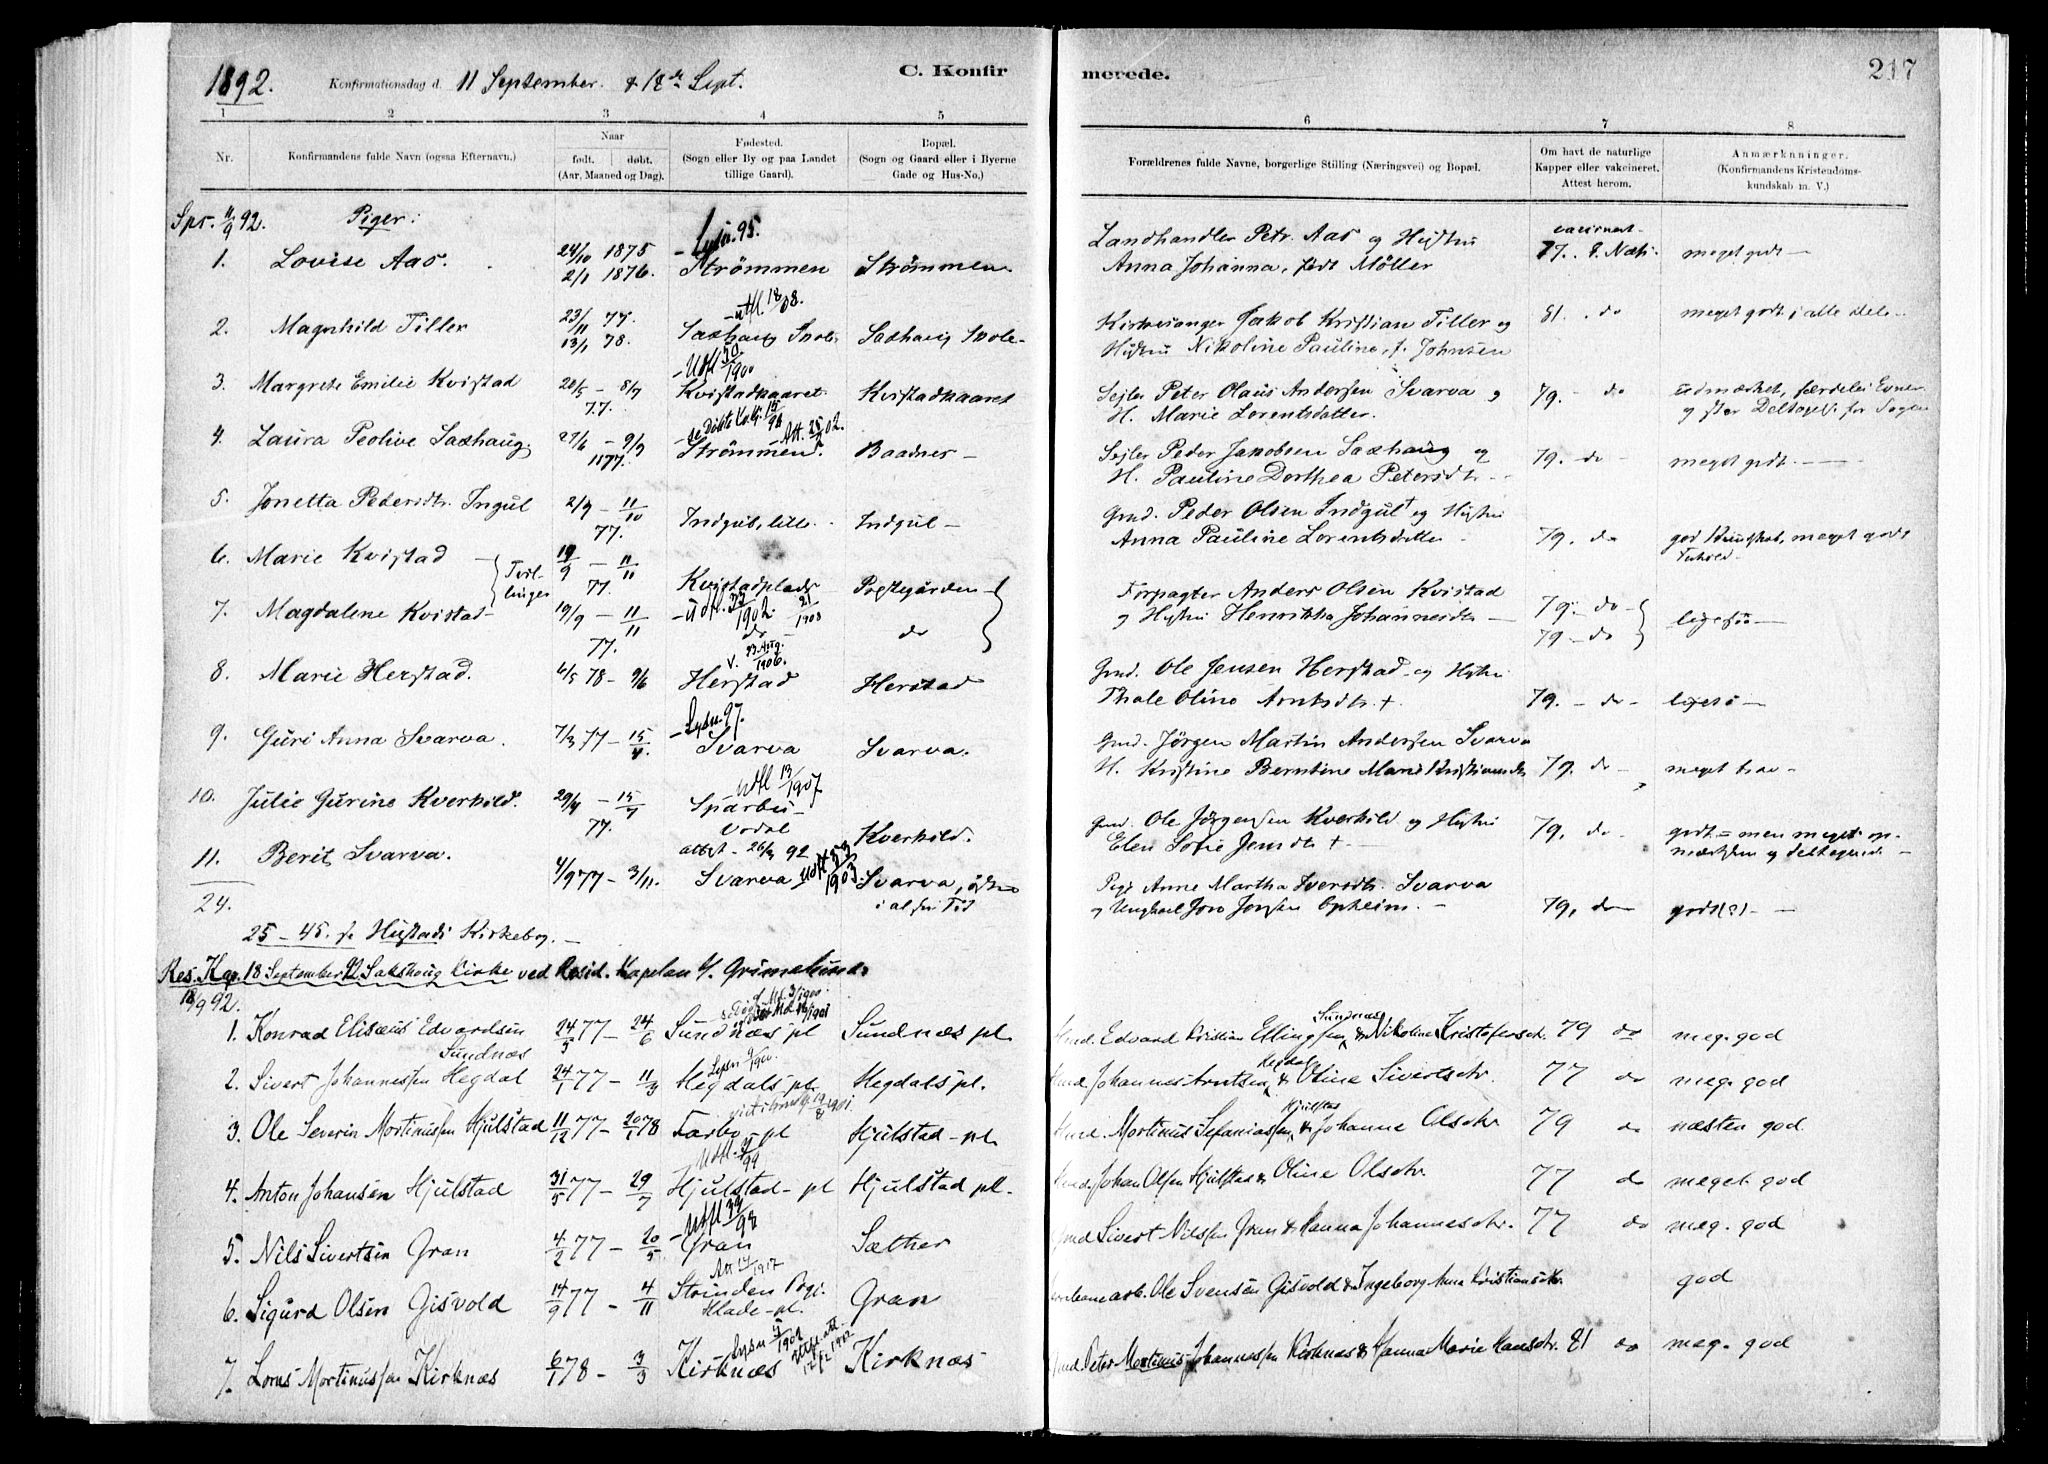 1892. Konfirmationsdag d. 11 September. & 18de Sept. C. Konfir merede. 217
1 2 3 4 5 6 7 8
Nr. Konfirmandens fulde Navn (ogsaa Efternavn.) Naar født. døbt. (Aar, Maaned og Dag). Fødested. (Sogn eller By og paa Landet tillige Gaard). Bopæl. (Sogn og Gaard eller i Byerne Gade og Hus-No.) Forældrenes fulde Navne, borgerlige Stilling (Næringsvei) og Bopæl. Om havt de naturlige Kapper eller vakcineret. Attest herom. Anmærkninger. (Konfirmandens Kristendomskundskab m. V.)
Spr. 11/9 92. Piger:
Lysn. 95.
1. Lovise Aas. 24/10 1875 2/1 1876. Strömmen Strömmen Landhandler Petr. Aas og Hustru
Anna Johanna, født Möller 77. meget godt
utfl. 18/ 08.
2. Magnhild Tiller 23/11 77. 13/1 78. Saxhaug Skole Saxhaug Skole Kirkesanger Jakob Kristian Tiller og
Hustru Nikoline Pauline, f. Johnsen 81. do meget godt i alle dele
Utfl 30/1900
3. Margrete Emilie Kvistad 28/5 - 8/7 77. Kvistadkaaret Kvistadkaaret Sejler Peter Olaus Andersen Svarva og
H. Marie Lorentsdatter. 79. do
Att. 25/2 02.
4. Laura Peolive Saxhaug. 27/6 - 9/9 1877. Strömmen. Baadnes Sejler Peder Jakobsen Saxhaug og
H. Pauline Dorthea Petersdtr 79. do meget godt.
5. Jonetta Pedersdtr. Ingul 2/9 - 11/10 77. Indgul, lille Indgul Grud. Peder Olsen Indgul † og Hustru
Anna Pauline Lorentsdatter 79. do god Kundskab, meget godt
6. Marie Kvistad Tvillinger 19/9 - 11/11 77. Kvistadplads Prestegården Forpagter Anders Olsen Kvistad
og Hustru Henrikka Johannesdtr 79. do
Utfl. 1902.
7. Magdalene Kvistad 19/9 - 11/11 77. do do 79 do ligeså
V. 23 Aug. 1906.
8. Marie Herstad. 6/5 78 - 9/6 Herstad Herstad Grud. Ole Jensen Herstad og Hustru
Thale Oline Arntsdtr. † 79. do ligeså
Lysn. 97.
9. Guri Anna Svarva. 7/3 77 - 15/4 Svarva Svarva. Grud. Jörgen Martin Andersen Svarva
H. Kristine Berntine Marie Kristiansdtr 79. do meget
Utfl 13/1907
10. Julie Gurine Kverkild. 29/4 - 15/7 77. Sparbu Vodal Kverkild. Grud. Ole Jörgensen Kverkild og Hustru
Elen Sofie Jensdtr † 79, do godt = men meget
attst. 26/8 92
11. Berit Svarva. 4/9 77 - 3/11. Svarva Svarva, Pige Anne Martha Iversdtr. Svarva
og Ungkarl Opheim. 79, do godt (?)
24.
25 - 45. se Hustads Kirkebog.
Res. Kap. 18 September 92 Sakshaug Kirke ved Resid. Kapelan Grimelund.
18/9 92.
1. Konrad Elisæus Edvardsen Sundnæs 24/5 77 - 24/6 Sundnæs pl Sundnæs pl. Hmd. Edvard Kristian Ellingsen Sundnæs & Nikoline Kristofersdr. 79 do meg. god
Lysn 9/1900.
2. Sivert Johannessen Hegdal 24/1 77 - 11/3 Hegdals pl. Hegdals pl. Hmd. Johannes Arntsen Hegdal & Oline Sivertsdr. 77 do meg. god
3. Ole Severin Mortinussen Hjulstad 11/12 77 - 20/1 78 Farbo - pl Hjulstad - pl. Hmd. Mortinus Sefaniassen Hjulstad & Johanne Olsdtr 79 do næsten god
4. Anton Johansen Hjulstad 31/5 77 - 29/7 Hjulstad - pl Hjulstad pl. Hmd. Johan Olsen Hjulstad & Oline Olsdtr. 77 do meget. god
5. Nils Sivertsen Gran 4/2 77 - 20/5 Gran Sæther Gmd Sivert Nilssen Gran & Hanna Johannesdr. 77 do meg. god
Att 1917
6. Sigurd Olsen Gisvold 14/9 77 - 4/11 Strinden Lade - pl. Gran Ole Svensen Gisvold & Ingeborg Anna Kristiansdtr. god
Lysn 5/1902
7. Lorns Mortinussen Kirknæs 6/1 78 - 3/3 Kirknæs Kirknæs Gmd. Peter Mortinus Johannessen Kirknæs & Hanna Marie Hansdr. 81 do meg. god